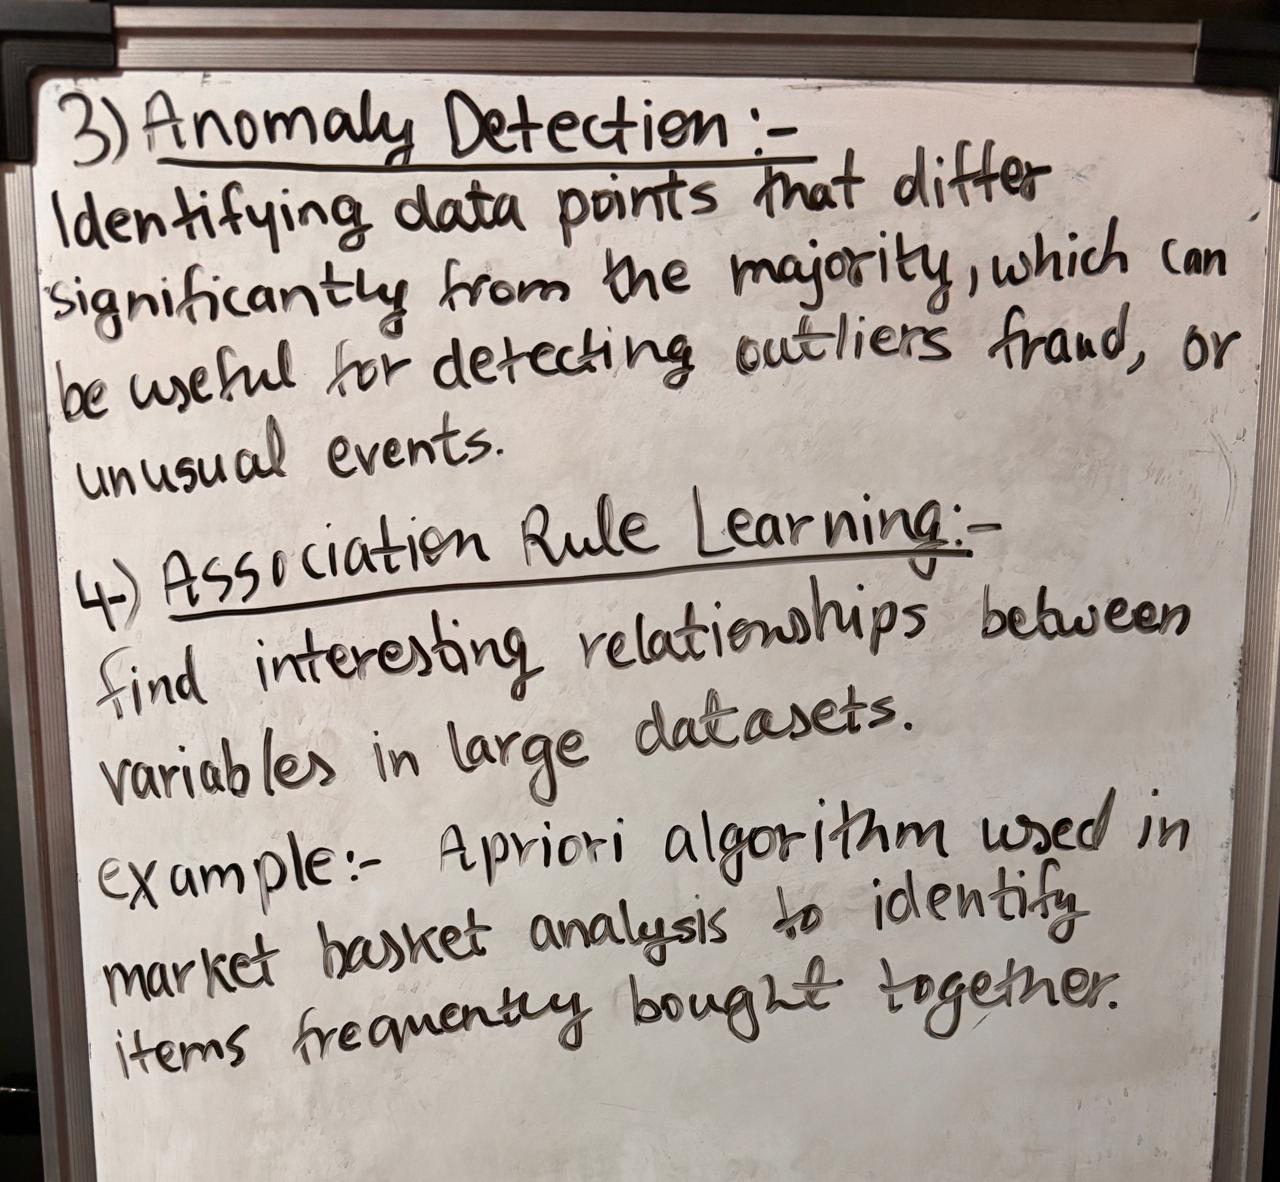 3) Anomaly Detection :-
Identifying data points that differ
significantly from the majority, which can
be useful for detecting outliers fraud, or
unusual events.
4) Association Rule Learning:-
find interesting relationships between
variables in large datasets.
example:- Apriori algorithm used in
market basket analysis to identify
items frequently bought together.